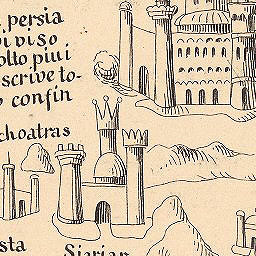 persia
diviso
olto piu i
scrive to-
confin
choatras
sta
Sirian